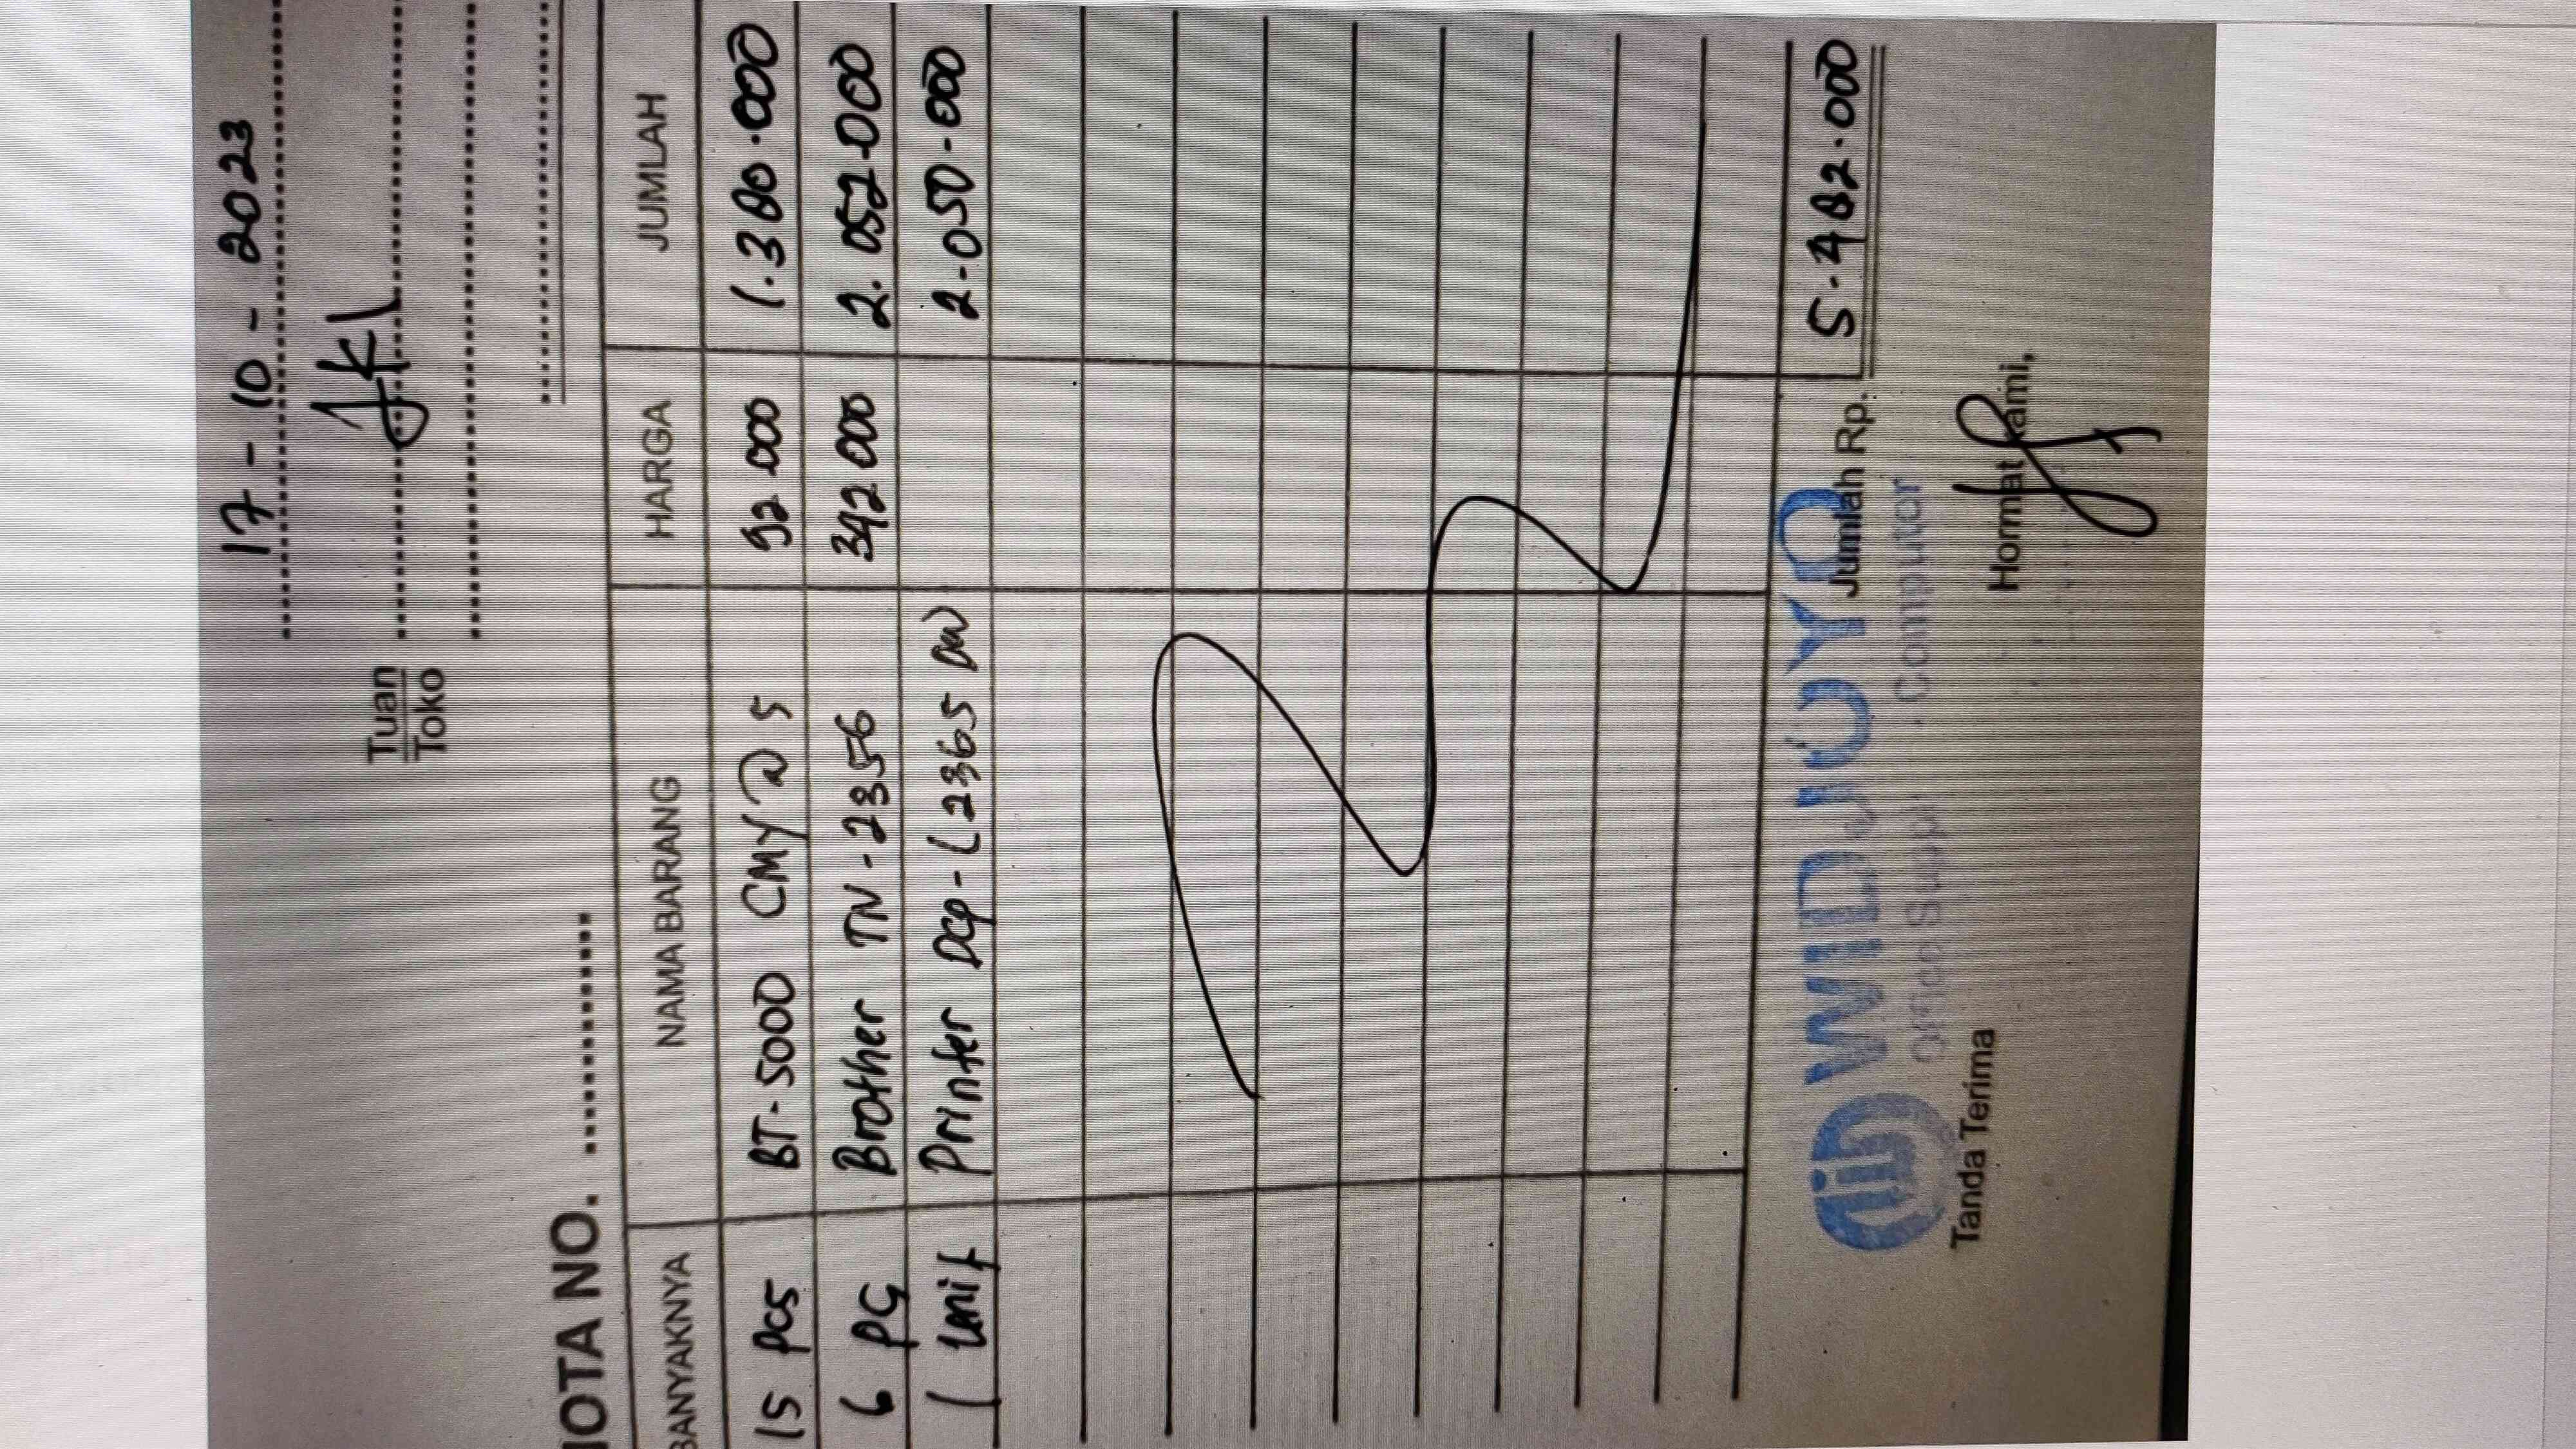 17 - 10 - 2023
Tuan JKL
Toko
NOTA NO.
BANYAKNYA NAMA BARANG HARGA JUMLAH
15 pcs BT-5000 CMY @ 5 92.000 1.380.000
6 pcs Brother TN-2356 342.000 2.052.000
1 unit Printer DCP-L2365 DW 2.050.000
Jumlah Rp. 5.482.000
WIDJOYO
Office Suppl Computer
Tanda Terima Hormat kami,